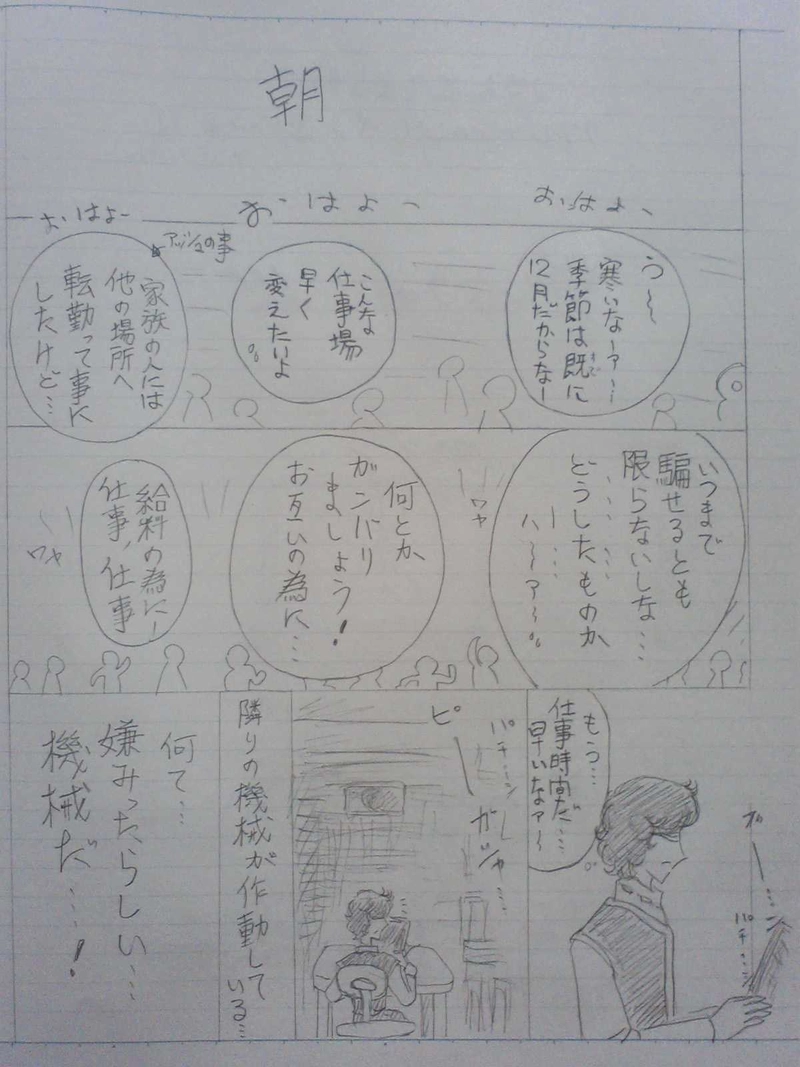 朝
おはよー
おはよー
おはよー
う〜〜
寒いなーァ〜…
季節は既に
すで
12月だからなー
こんな
仕事場
早く
変えたいよ
アッシュの事
家族の人には
他の場所へ
転勤って事に
したけど…
いつまで
騙せるとも
限らないしな…
……どうしたものか
ハ〜ァ〜
ワヤ
何とか
ガンバリ
ましょう!
お互いの為に…
給料の為に!
仕事、仕事
ワヤ
もう…
仕事時間だ…
早いなァ〜
ブー…ン
パチ…ン
パチ…ン
ガシャ…
ピー
隣りの機械が作動して
いる…
何て…
嫌みったらしい…
機械だ…!